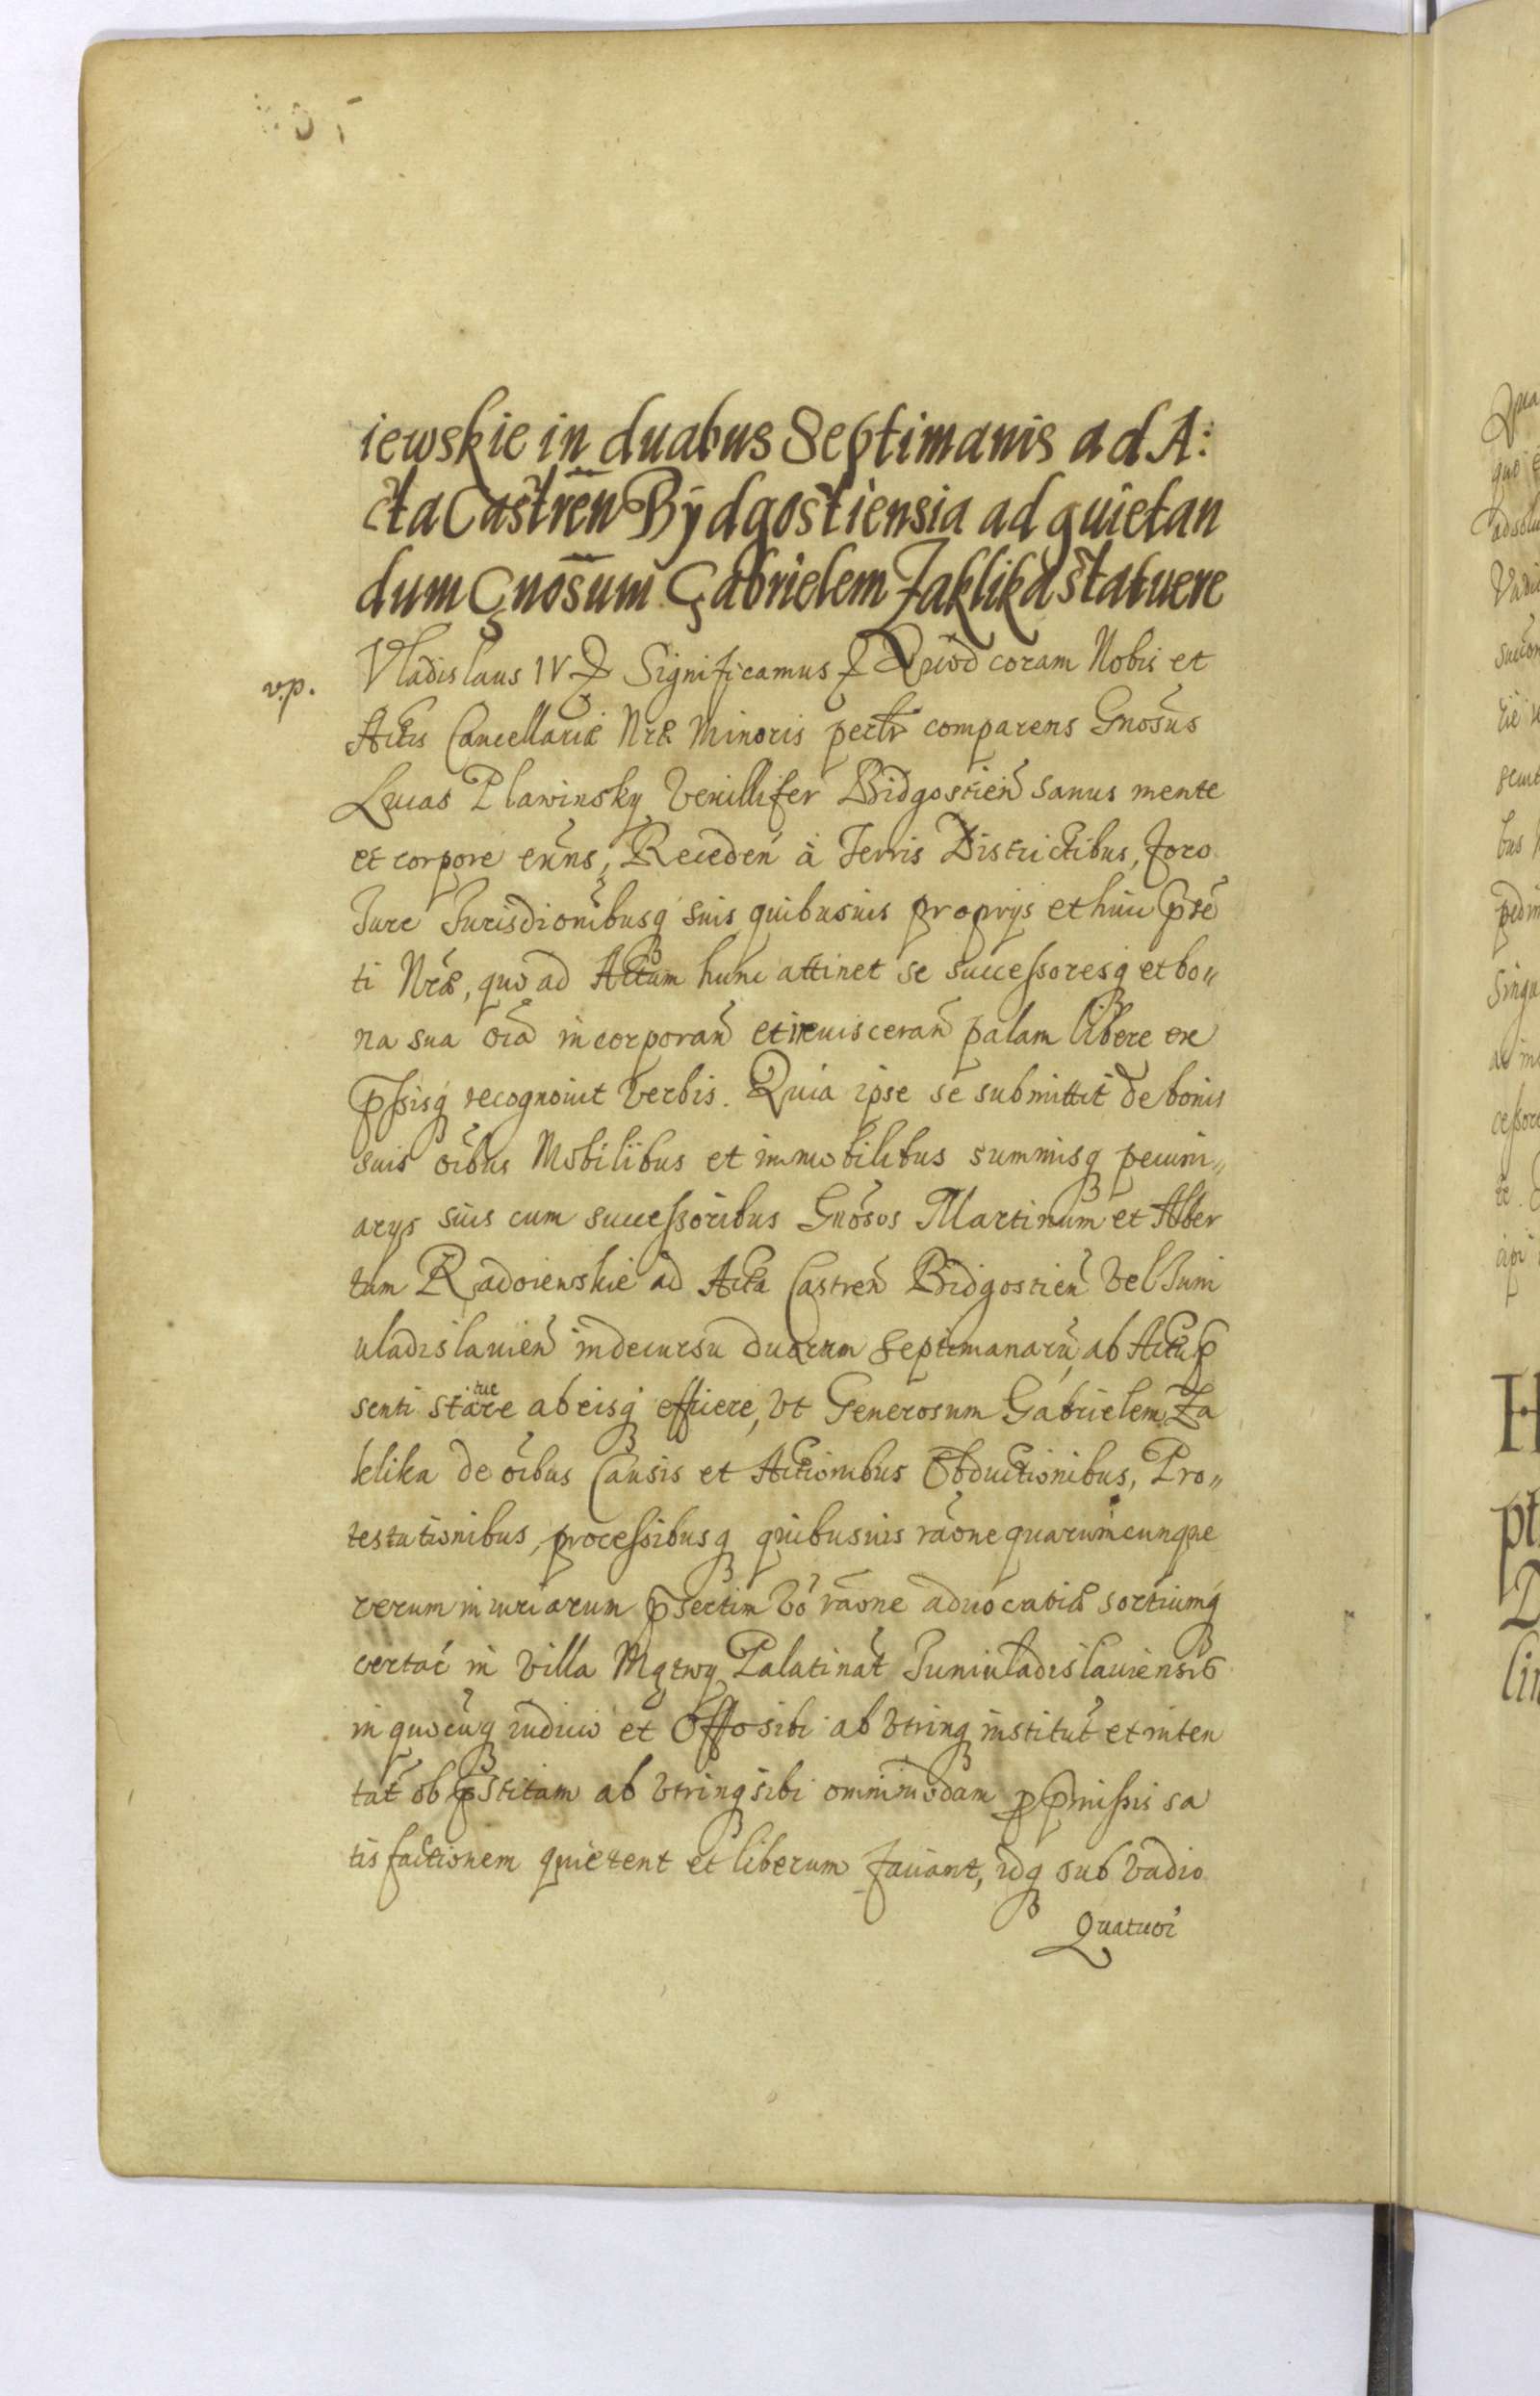 iewskie in duabus Septimanis ad A:
cta Castren̄ Bydgostiensia ad quietan
dum Gnosum Gabrielem Zaklika statuere
v.p. Vladislaus IV Significamus Quod coram Nobis et
Actis Cancellariæ Nræ Minoris perlr comparens Gnosus
Lucas Plawinsky Vexillifer Bidgostien̄ sanus mente
et corpore exn̄s, Receden̄ à Terris Districtibus, foro
Jure Jurisdionibusq suis quibusuis proprijs et huic p̄se
ti Nræ, quo ad Actum hunc attinet se successoresq et bo„
na sua oia incorporan̄ et inuisceran̄ palam libere ex
p̄ssisq recognouit verbis. Quia ipse se submittit de bonis
suis oibus Mobilibus et immobilibus summisq pecuni„
arys suis cum successoribus Gnosos Martinum et Alber
tum Radoiewskie ad Acta Castren̄ Bidgostien̄ vel Juni
uladislauien̄ in decursu duarum septimanarū, ab Actu p̄
senti statuere ab eisq efficere, vt Generosum Gabrielem Za
klika de oibus Causis et Actionibus Obductionibus, Pro„
testationibus, processibusq quibusuis raōne quarumcunque
rerum iniuriarum p̄sertim vo raōne aduocatiæ sortiumq
certac in villa Mątwy Palatinat̄ Juniuladislauiensis
in quocūq iudicio et Offo sibi ab vtrinq institut̄ et inten
tat̄ ob p̄stitam ab vtrinq sibi omnimodam p p̄missis sa
tisfactionem quietent et liberum faciant, idq sub vadio
Quatuor